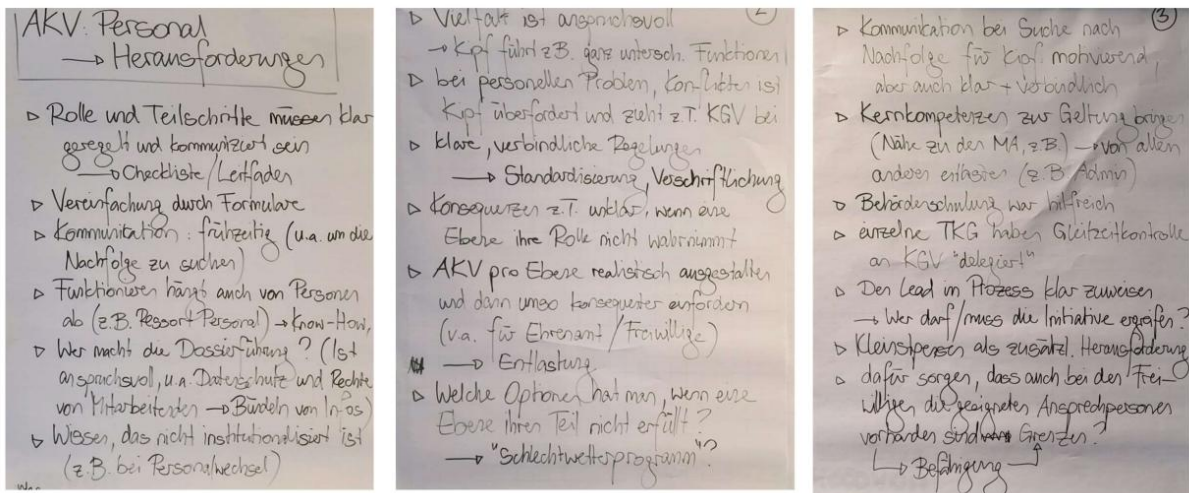 AKV: Personal
→ Herausforderungen
▹ Rolle und Teilschritte müssen klar
geregelt und kommuniziert sein
→ Checkliste/Leitfaden
▹ Vereinfachung durch Formulare
▹ Kommunikation: frühzeitig (u.a. um die
Nachfolge zu suchen)
▹ Funktionieren hängt auch von Personen
ab (z.B. Ressort Personal) → Know-How,
▹ Wer macht die Dossierführung? (Ist
anspruchsvoll, u.a. Datenschutz und Rechte
von Mitarbeitenden → Bündeln von Infos)
▹ Wissen, das nicht institutionalisiert ist
(z.B. bei Personalwechsel)
②
▹ Vielfalt ist anspruchsvoll
→ Kipf führt z.B. ganz untersch. Funktionen
▹ bei personellen Problem, Konflikten ist
Kipf überfordert und zieht z.T. KGV bei
▹ klare, verbindliche Regelungen
→ Standardisierung, Verschriftlichung
▹ Konsequenzen z.T. unklar, wenn eine
Ebene ihre Rolle nicht wahrnimmt
▹ AKV pro Ebene realistisch ausgestalten
und dann umso konsequenter einfordern
(v.a. für Ehrenamt/Freiwillige)
→ Entlastung
▹ Welche Optionen hat man, wenn eine
Ebene ihren Teil nicht erfüllt?
→ "Schlechtwetterprogramm"?
③
▹ Kommunikation bei Suche nach
Nachfolge für Kipf. motivierend,
aber auch klar + verbindlich
▹ Kernkompetenzen zur Geltung bringen
(Nähe zu den MA, z.B.) → von allem
anderen entlasten (z.B. Admin)
▹ Behördenschulung war hilfreich
▹ einzelne TKG haben Gleitzeitkontrolle
an KGV "delegiert"
▹ Den Lead im Prozess klar zuweisen
→ Wer darf/muss die Initiative ergreifen?
▹ Kleinstpensen als zusätzl. Herausforderung
▹ dafür sorgen, dass auch bei den Frei-
willigen die geeigneten Ansprechpersonen
vorhanden sind Grenzen?
→ Befähigung